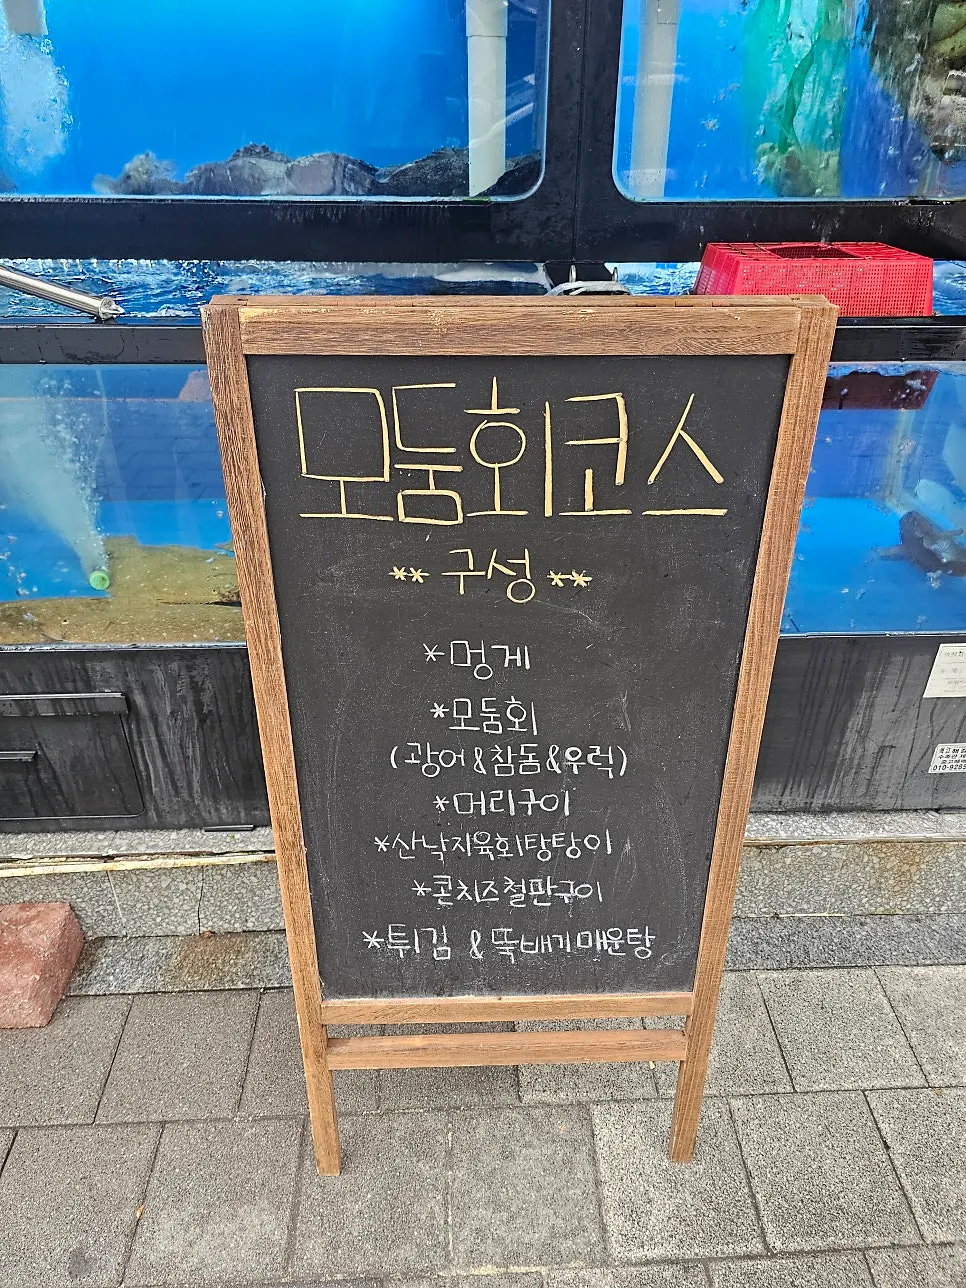 모둠회코스
** 구성 **
*멍게
*모둠회
(광어&참돔&우럭)
*머리구이
*산낙지육회탕탕이
*콘치즈철판구이
*튀김 & 뚝배기매운탕